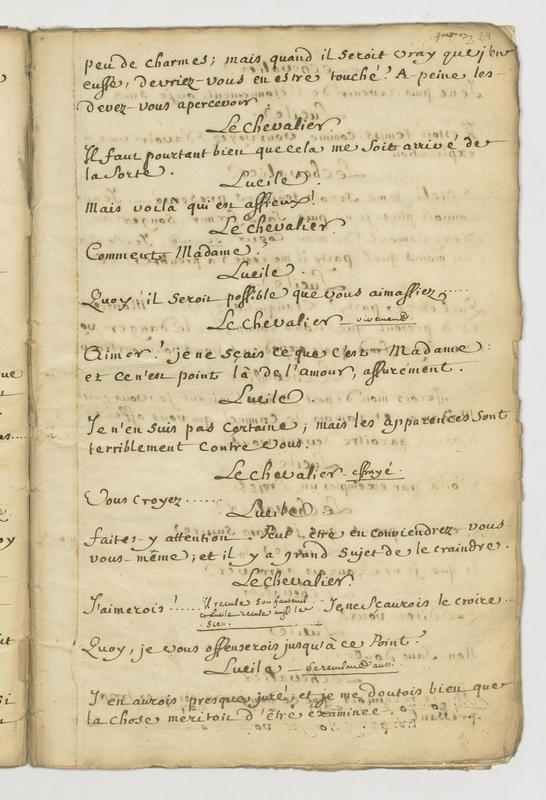 29
peu de charmes; mais quand il seroit vray que j'en
eusse, devriez-vous en estre touché? A peine les-
devez-vous apercevoir.
Le chevalier
Il faut pourtant bien que cela me soit arrivé de
la sorte.
Lucile.
Mais voilà qui est affreux!
Le chevalier
Comment, Madame?
Lucile.
Quoy! il seroit possible que vous aimassiez.....
Le chevalier vivement
Aimer! je ne sçais ce que c'est Madame:
et ce n'est point là de l'amour, assurément.
Lucile.
Je n'en suis pas certaine; mais les apparences sont
terriblement contre vous.
Le chevalier effrayé.
Vous croyez.......
Lucile.
faites-y attention. Peut être en conviendrez-vous
vous-même; et il y a grand sujet de le craindre.
Le chevalier
J'aimerois!...... il recule son fauteuil
et Lucile recule aussi le
sien. Je ne sçaurois le croire...
Quoy, je vous offenserois jusqu'à ce Point?
Lucile se reculant aussi
J'en aurois presque juré; et je me doutois bien que
la chose méritoit d'être examinée.